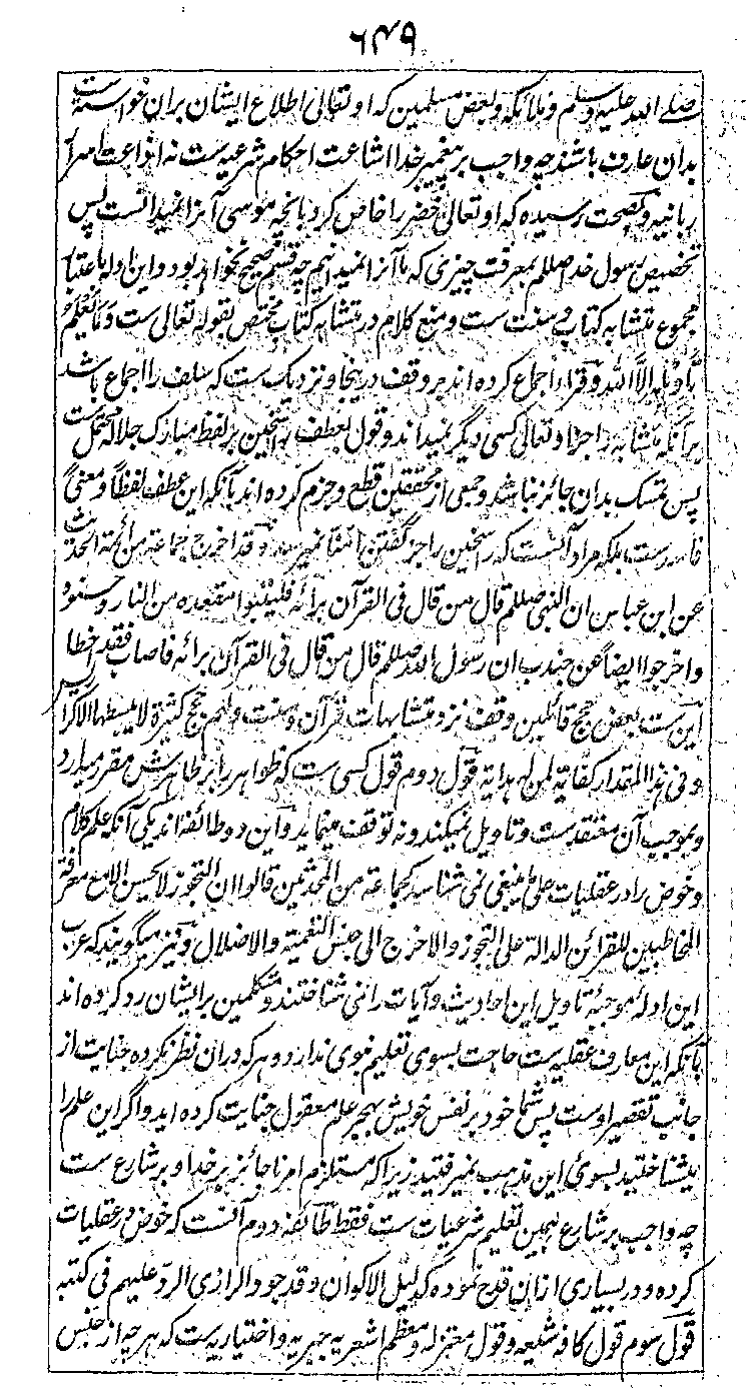 ٦٤٩
صلے الله علیه وسلم وملائکه وبعض مسلمین که او تعالی اطلاع ایشان بران خواسته است
بدان عارف باشند چه واجب بر پیغمبر خدا اشاعت احکام شرعیه ست نه اذاعت اسرار
ربانیه وبصحت رسیده که او تعالی خضر را خاص کرد بانچه موسی آنرا نمیدانست پس
تخصیص رسول خدا صللم بمعرفت چیزی که ما آنرا نمیدانیم چه قسم صحیح نخواهد بود واین ادله باعتبار
مجموع متشابه کتاب وسنت ست ومنع کلام در متشابه کتاب مختص بقوله تعالی ست وَمَا یَعْلَمُ
تَأْوِیلَهُ إِلَّا اللهُ وقراء اجماع کرده اند بر وقف درینجا ونزدیک ست که سلف را اجماع باشد
برآنکه متشابه را جز او تعالی کسی دیگر نمیداند وقول بعطف راسخین بر لفظ مبارک جلاله محتمل ست
پس تمسک بدان جائز نباشد وجمعی از محققین قطع وجزم کرده اند بآنکه این عطف لفظاً ومعنیً
فاسد ست بلکه مراد آنست که راسخین را جز گفتن آمنا نمیرسد وقد اخرج جماعة من ائمة الحدیث
عن ابن عباس ان النبی صللم قال من قال فی القرآن برائه فلیتبوأ مقعده من النار وحسنوه
واخرجوا ایضاً عن جندب ان رسول الله صللم قال من قال فی القرآن برائه فاصاب فقد اخطا
این ست بعض حجج قائلین وقف نزد متشابهات قرآن وسنت ولهم حجج کثیرة لا یبسطها الا کراریس
وفی هذا المقدار کفایة لمن له هدایة قول دوم قول کسی ست که ظواهر را بر ظاهرش مقرر میدارد
وبموجب آن معتقد ست وتاویل نمیکند ونه توقف مینماید واین دو طائفه اند یکی آنکه علم کلام
وخوض را در عقلیات علی ما ینبغی نمی شناسد کجماعة من المحدثین قالوا ان التجوز لا یحسن الا مع معرفة
المخاطبین للقرائن الدالة علی التجوز والا خرج الی جنس التعمیة والاضلال ونیز میگویند که عرب
این ادلهٔ موجبهٔ تاویل این احادیث وآیات را نمی شناختند ومتکلمین بر ایشان رد کرده اند
بآنکه این معارف عقلیه ست حاجت بسوی تعلیم نبوی ندارد وهر که دران نظر نکرده جنایت از
جانب تقصیر اوست پس شما خود بر نفس خویش بهجر علم معقول جنایت کرده اید واگر این علم را
میشناختید بسوی این مذهب نمیرفتید زیرا که مستلزم امر ناجائز بر خدا وبر شارع ست
چه واجب بر شارع همین تعلیم شرعیات ست فقط طائفه دوم آنست که خوض در عقلیات
کرده ودر بسیاری ازان قدح نموده کدلیل الاکوان وقد جود الرازی الرد علیهم فی کتبه
قول سوم قول کافه شیعه وقول معتزله ومعظم اشعریه جبریه واختیاریه ست که هر چه از جنس